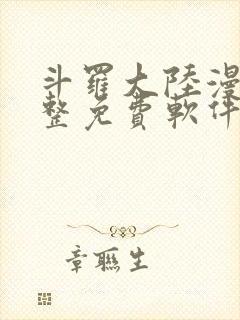 斗羅大陸漫
整免費軟件
章聯生